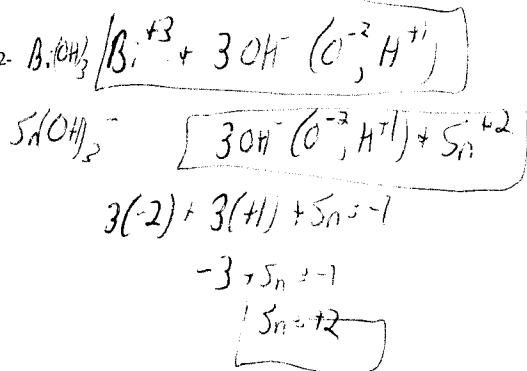 2- Bi(OH)₃ Bi⁺³ + 3 OH⁻ (O⁻², H⁺¹)
Sn(OH)₃⁻ 3 OH⁻ (O⁻², H⁺¹) + Sn⁺²
3(-2) + 3(+1) + Sn = -1
-3 + Sn = -1
Sn = +2